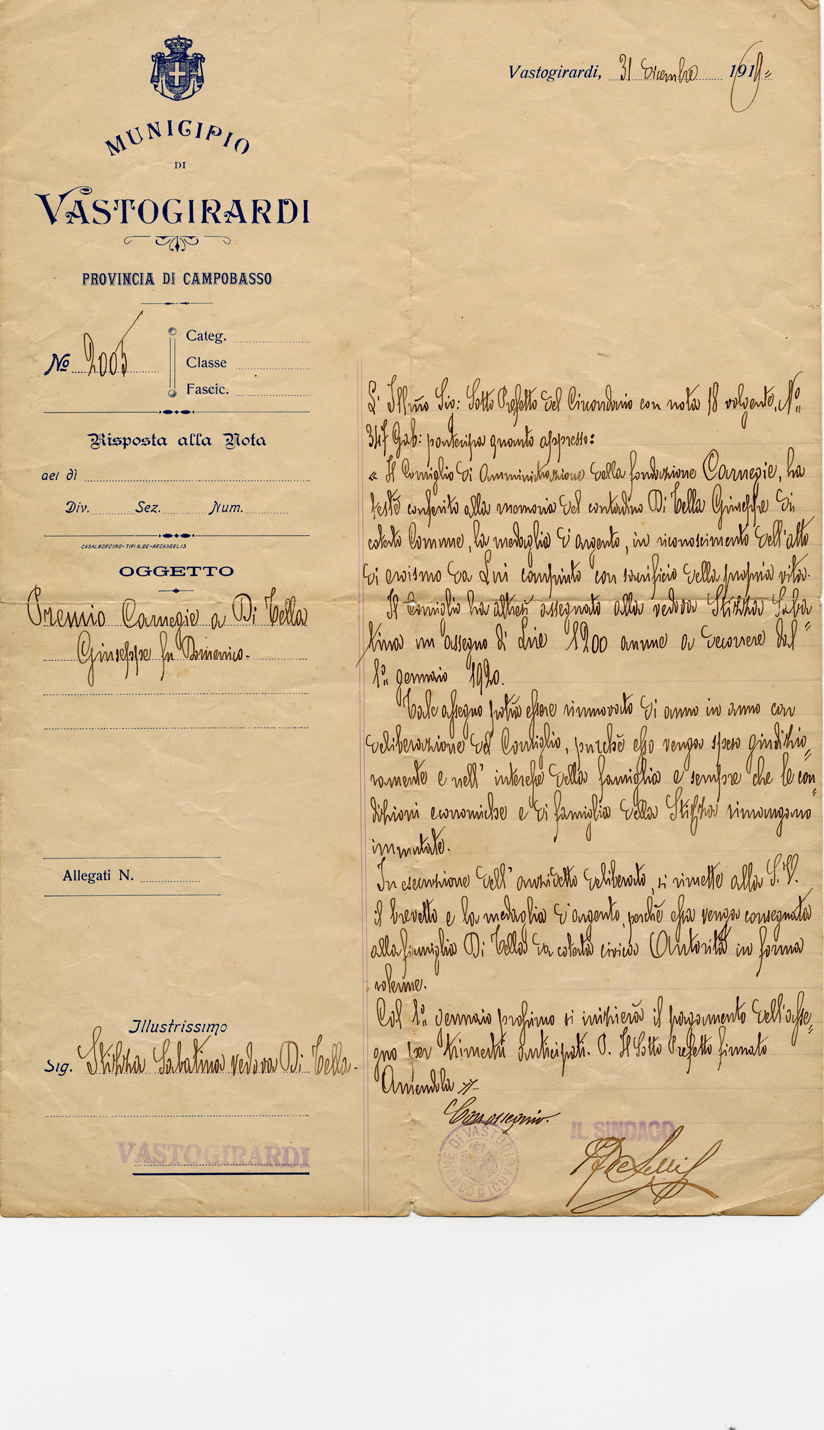 MUNICIPIO
DI
VASTOGIRARDI
PROVINCIA DI CAMPOBASSO
Vastogirardi, 31 Dicembre 1919=
No 2005
Categ.
Classe
Fascic.
Risposta alla Nota
del dì
Div. Sez. Num.
CASALBORDINO-TIP. N. DE-ARCANGELIS
OGGETTO
Premio Carnegie a Di Tella
Giuseppe fu Domenico-
Allegati N.
Illustrissimo
Sig. Stizza Sabatina vedova Di Tella-
VASTOGIRARDI
L' Ill/mo Sig: Sotto Prefetto del Circondario con nota 18 volgente, No=
347 Gab: partecipa quanto appresso:
« Il Consiglio di Amministrazione della fondazione Carnegie, ha
testè conferito alla memoria del contadino Di Tella Giuseppe di
cotesto Comune, la medaglia d'argento, in riconoscimento dell'atto
di eroismo da Lui compiuto con sacrificio della propria vita.
Il Consiglio ha altresì assegnato alla vedova Stizza Saba=
tina un assegno di Lire 1200 annue a decorrere dal
1º gennaio 1920.
Tale assegno potrà essere rinnovato di anno in anno con
deliberazione del Consiglio, purchè esso venga speso giudizio=
samente e nell' interesse della famiglia e sempre che le con=
dizioni economiche e di famiglia della Stizza rimangano
immutate.
In esecuzione dell' anzidetto deliberato, si rimette alla S.V.
il brevetto e la medaglia d'argento, perchè essa venga consegnata
alla famiglia Di Tella da cotesta civica Autorità in forma
solenne.
Col 1º gennaio prossimo si inizierà il pagamento dell'asse=
gno per trimestri anticipati. Il Sotto Prefetto firmato
Amendola »
Con ossequio.
COMUNE DI VASTOGIRARDI
IL SINDACO